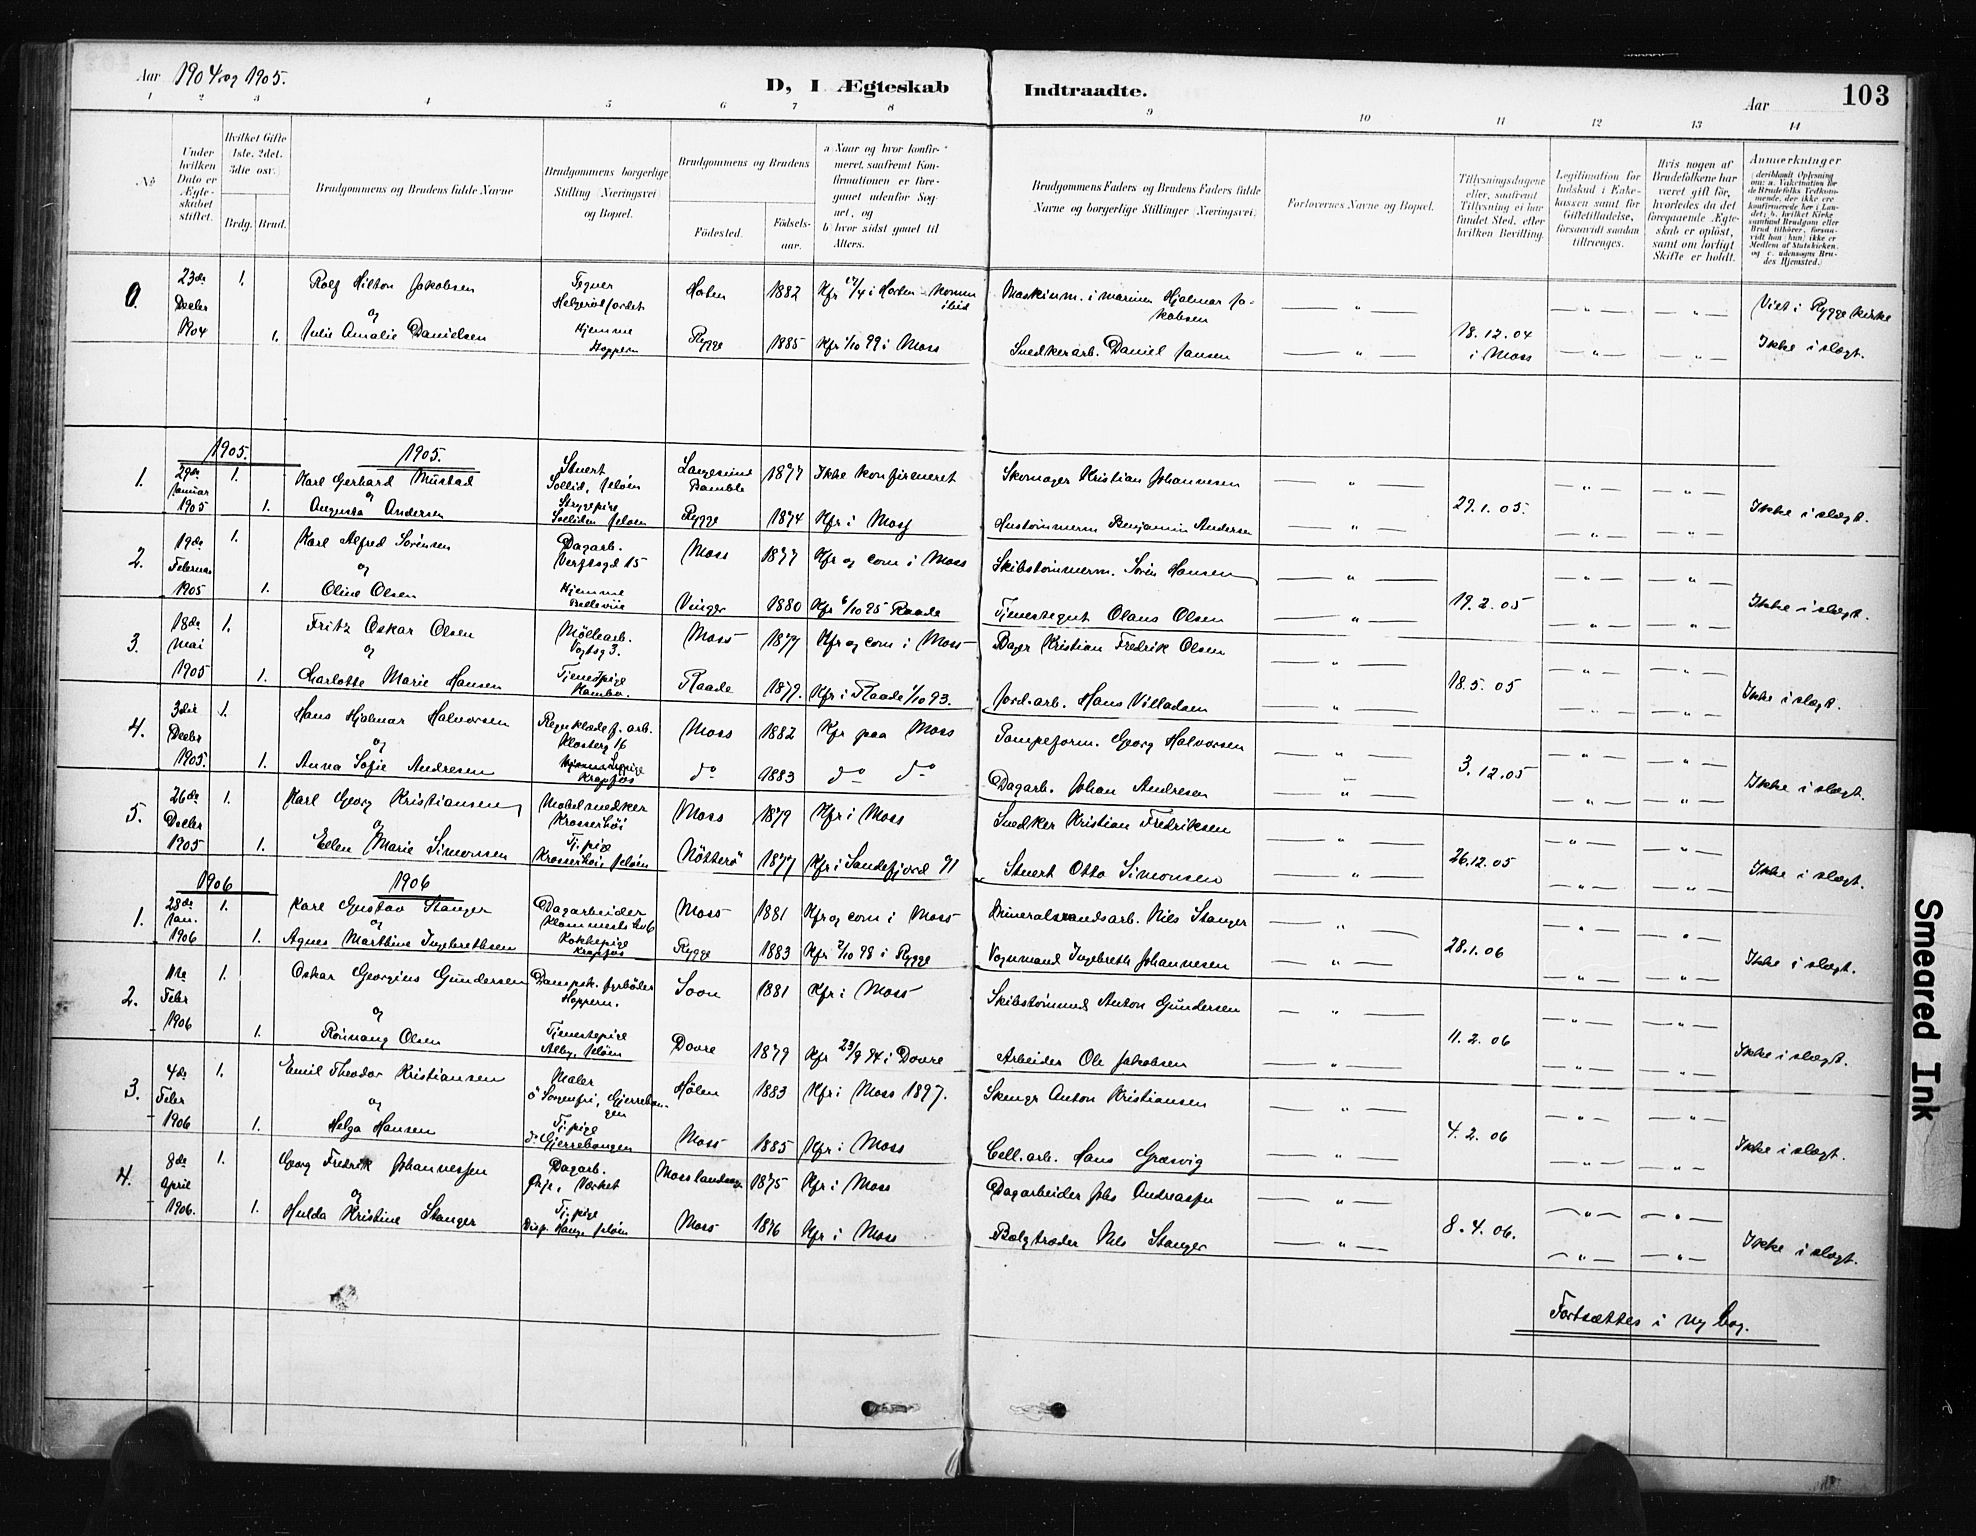 Aar 1904 og 1905.
D, I Ægteskab Indtraadte.
Aar
103
1 2 3 4 5 6 7 8 9 10 11 12 13 14
No
Under hvilken Dato er Ægteskabet stiftet.
Hvilket Gifte 1ste, 2det, 3die osv.
Brdg. Brud.
Brudgommens og Brudens fulde Navne
Brudgommens borgerlige Stilling (Næringsvei) og Bopæl.
Brudgommens og Brudens
Fødested. Fødselsaar.
a Naar og hvor konfirmeret, saafremt Konfirmationen er foregaaet udenfor Sognet, og
b hvor sidst gaaet til Alters.
Brudgommens Faders og Brudens Faders fulde Navne og borgerlige Stillinger (Næringsvei)
Forlovernes Navne og Bopæl.
Tillysningsdagene eller, saafremt Tillysning ei har fundet Sted, efter hvilken Bevilling.
Legitimation for Indskud i Enkekassen samt for Giftetilladelse, forsaavidt saadan tiltrænges.
Hvis nogen af Brudefolkene har været gift før, hvorledes da det foregaaende Ægteskab er opløst, samt om lovligt Skifte er holdt.
Anmærkninger
(deriblandt Oplysning om: a. Vakcination for de Brudefolks Vedkommende, der ikke ere konfirmerede her i Landet; b. hvilket Kirkesamfund Brudgom eller Brud tilhører, forsaavidt han (hun) ikke er Medlem af Statskirken, og c. udensogns Brudes Hjemsted.)
0. 23de 1. Rolf Hilton Jakobsen Horten 1882 Maskinm. i marinen Hjalmar Jakobsen Viet i Rygge kirke
Decbr og
1904 1. Julie Amalie Danielsen Hjemme Rygge 1885 Kfr 1/10 99 i Moss Snedkerarb. Daniel Jansen 18.12.04 i Moss Ikke i slægt.
1905. 1905.
1. 29de 1. Karl Gerhard Mustad Stuert Langesund 1877 Ikke konfirmeret Skomager Kristian Johannesen
Januar og Sollid, Jeløen Bamble
1905 1. Augusta Andersen Strygepige Rygge 1874 Kfr i Moss Hustømmerm Benjamin Andersen 29.1.05. Ikke i slægt.
2. 19de 1. Karl Alfred Sørensen Dagarb. Moss 1877 Kfr og com i Moss Skibstømmerm. Sørin Hansen
Februar og
1905 1. Oline Olsen Hjemme Vinger 1880 Kfr 6/10 95 Raade Tjenestegut Olaus Olsen 19.2.05 Ikke i slægt.
3. 18de 1. Fritz Oskar Olsen Møllearb. Moss 1877 Kfr og com i Moss Dagr Kristian Fredrik Olsen
Mai og Vogtsg 3.
1905 1. Charlotte Marie Hansen Tjenestpige Kambo. Raade 1879. Kfr i Raade 1/10 93. Jord.arb. Hans Villadsen 18.5.05 Ikke i slægt.
4. 3die 1. Hans Hjalmar Halvorsen Regnklædef. arb. Moss 1882 Kfr paa Moss Pampeform. Georg Halvorsen
Decbr og Klosterg 16
1905. 1. Anna Sofie Andresen Krapfos do 1883 do do Dagarb. Johan Andresen 3.12.05 Ikke i slægt.
5. 26de 1. Karl Georg Kristiansen Møbelsnedker Moss 1879 Kfr i Moss Snedker Kristian Fredriksen
Decbr og Krosserhøi
1905 1. Ellen Marie Simonsen Tj.pige Krosserhøi Jeløen Nøtterø 1877 Kfr i Sandefjord 91 Stuert Otto Simonsen 26.12.05 Ikke i slægt.
1906 1906
1. 28de 1. Karl Gustav Stanger Dagarbeider Moss 1881 Kfr og com i Moss Mineralvandsarb. Nils Stanger
Jan. og
1906 1. Agnes Marthine Ingebrethsen Kokkepige Krapfos Rygge 1883 Kfr 2/10 98 i Rygge Vognmand Ingebreth Johannesen 28.1.06 Ikke i slægt.
2. 11te 1. Oskar Georgius Gundersen Dampsk. fyrbøder Soon 1881 Kfr i Moss Skibstømmd Anton Gundersen
Febr og
1906 1. Rønnaug Olsen Tjenestepige Alby, Jeløen Dovre 1879 Kfr 23/9 94 i Dovre Arbeider Ole Jakobsen 11.2.06 Ikke i slægt.
3. 4de 1. Emil Theodor Kristiansen Maler Hølen 1883 Kfr i Moss 1897. Skomgr Anton Kristiansen
Febr og ø Sorgenfri, Gjerrebogen
1906 1. Helga Hansen Tj.pige do Gjerrebogen Moss 1885 Kfr i Moss Cell.arb. Hans Græsvig 4.2.06 Ikke i slægt.
4. 8de 1. Georg Fredrik Johannessen Dagarb. Moss landsogn 1875 Kfr i Moss Dagarbeider Johs Andreassen
April og Værket
1906. 1. Hulda Kristine Stanger Tj.pige Moss 1876 Kfr i Moss Bælgtræder Nils Stanger 8.4.06. Ikke i slægt.
Fortsættes i ny bog.
Smeared Ink